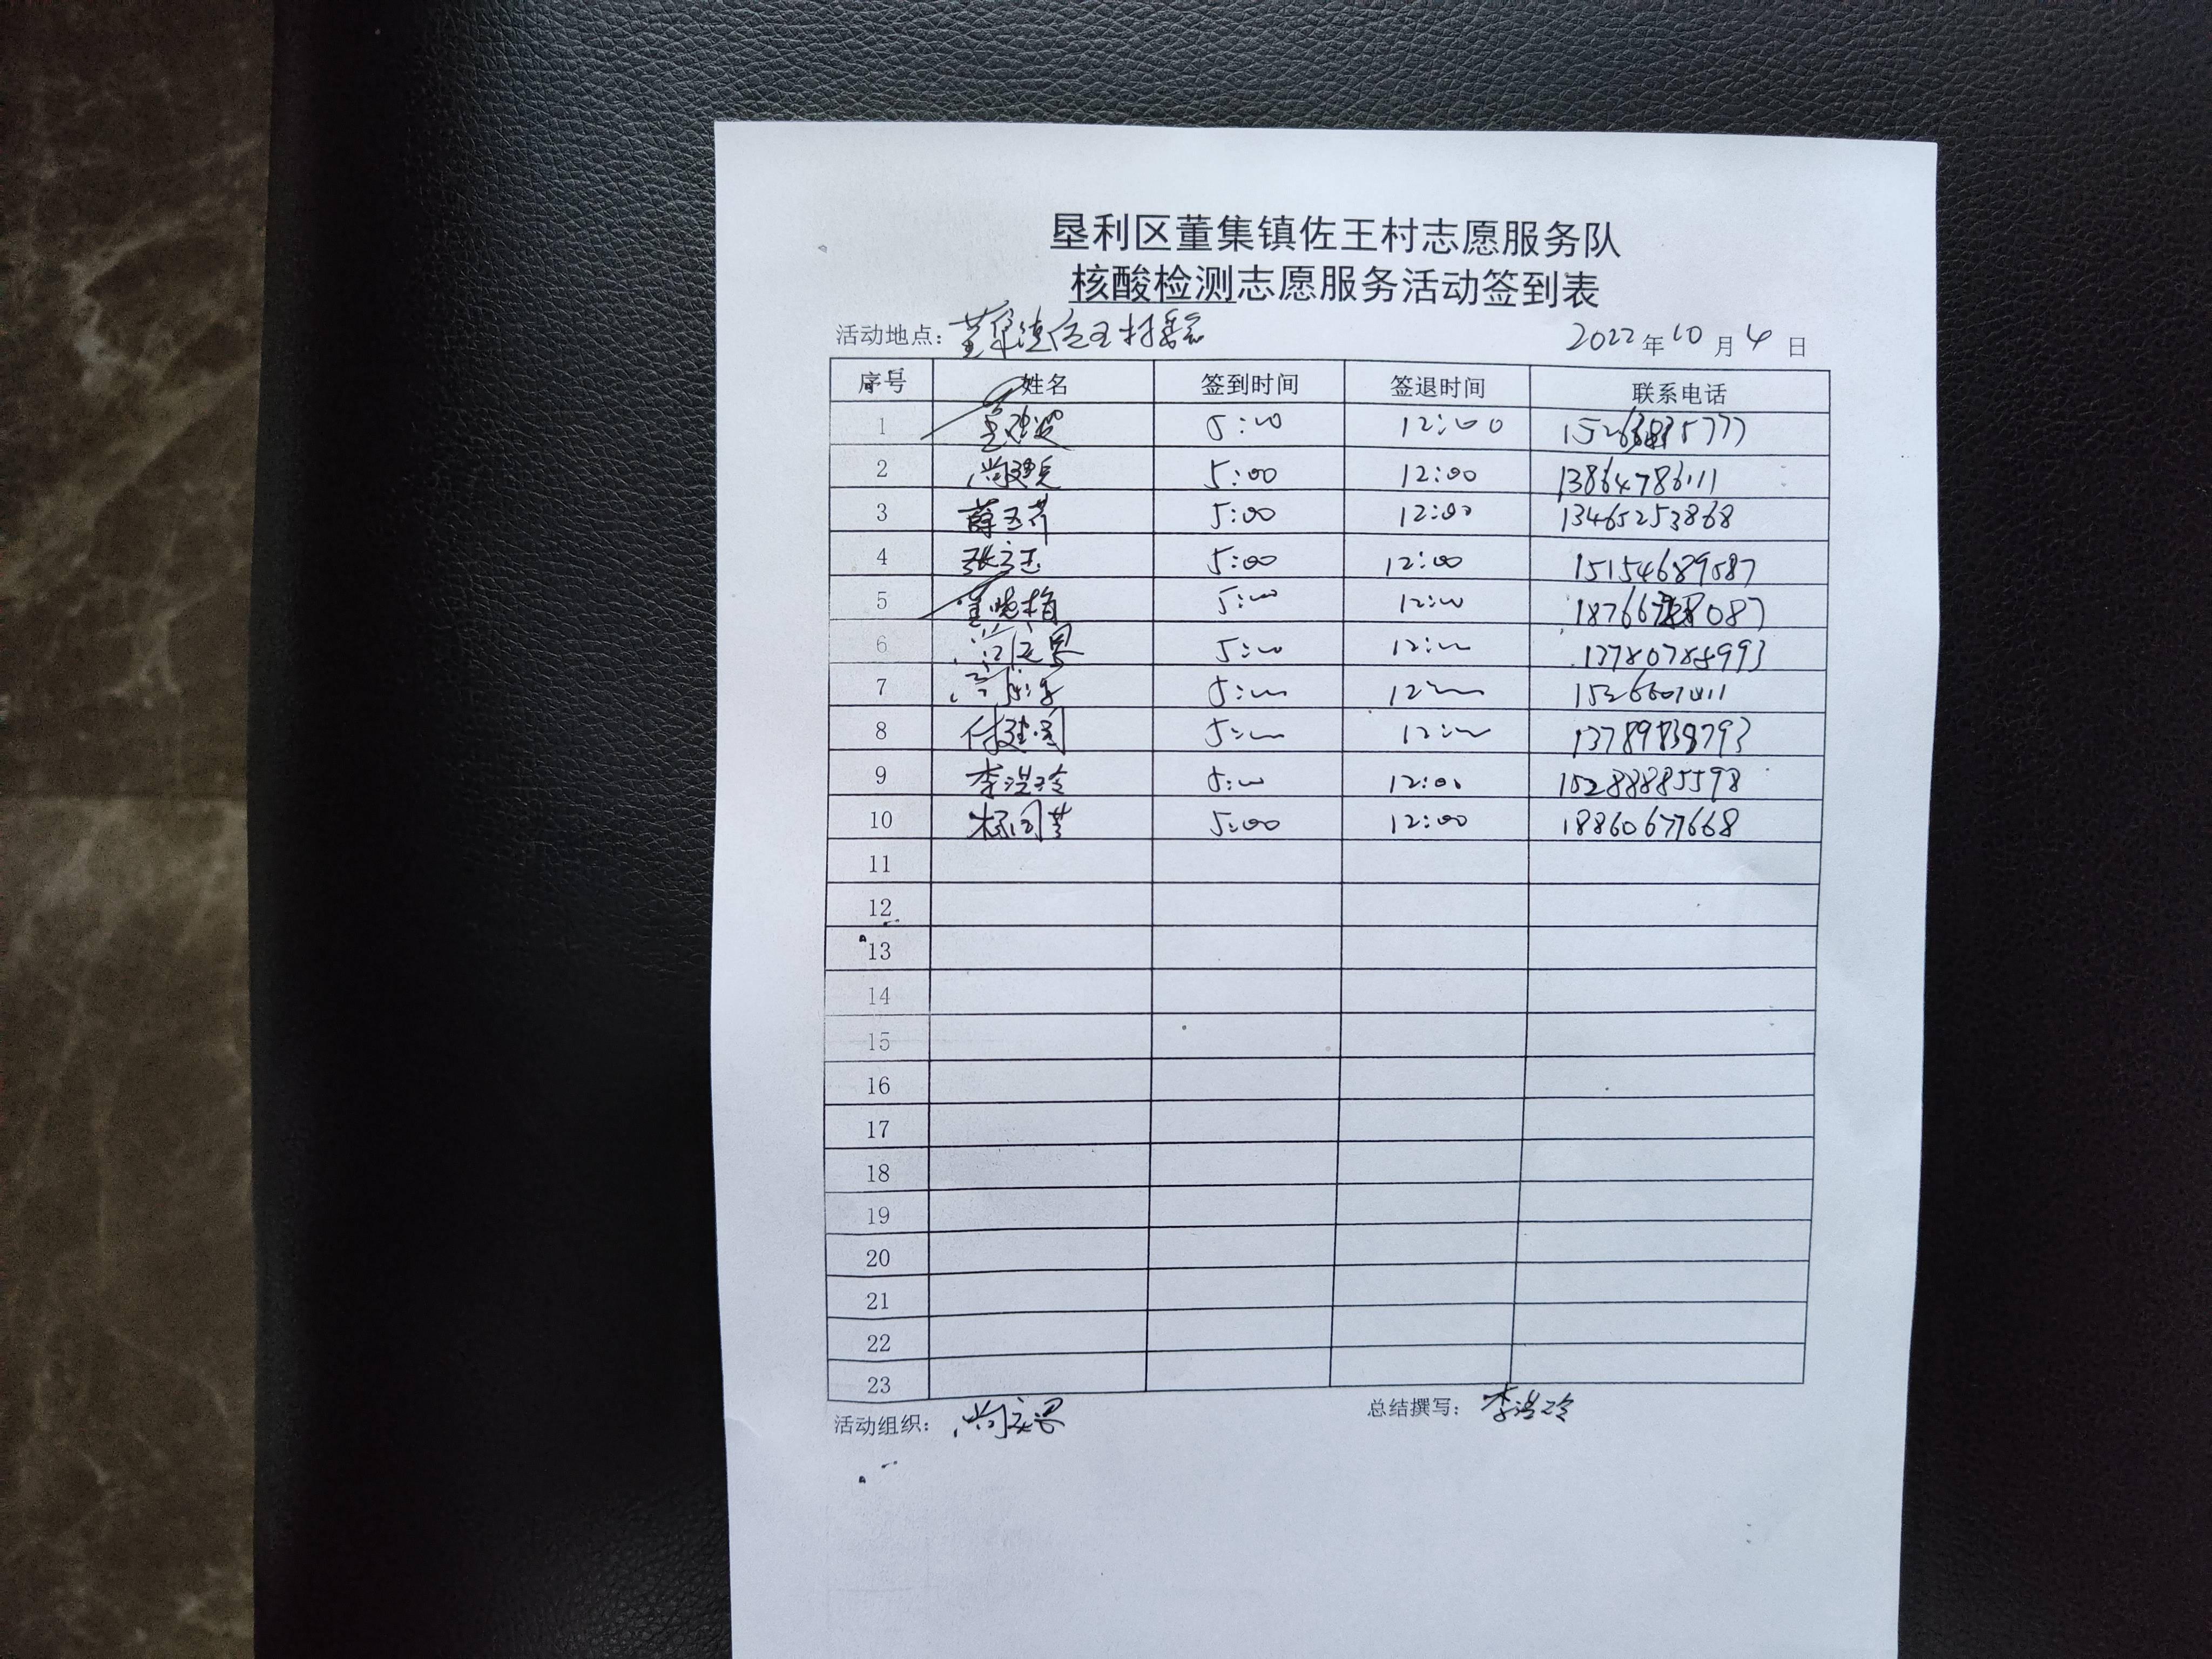 垦利区董集镇佐王村志愿服务队
核酸检测志愿服务活动签到表
活动地点：董集镇佐王村委会 2022年10月4日
序号 姓名 签到时间 签退时间 联系电话
1 5:00 12:00
2 尚建兵 5:00 12:00 13864786111
3 薛玉芹 5:00 12:00 13465253868
4 5:00 12:00 15154689587
5 5:00 12:00
6 尚庆恩 5:00 12:00 13780788993
7 5:00 12:00
8 付建国 5:00 12:00
9 李浩玲 5:00 12:00 15288885598
10 杨同芳 5:00 12:00 18860677668
11
12
13
14
15
16
17
18
19
20
21
22
23
活动组织：尚庆恩 总结撰写：李浩玲